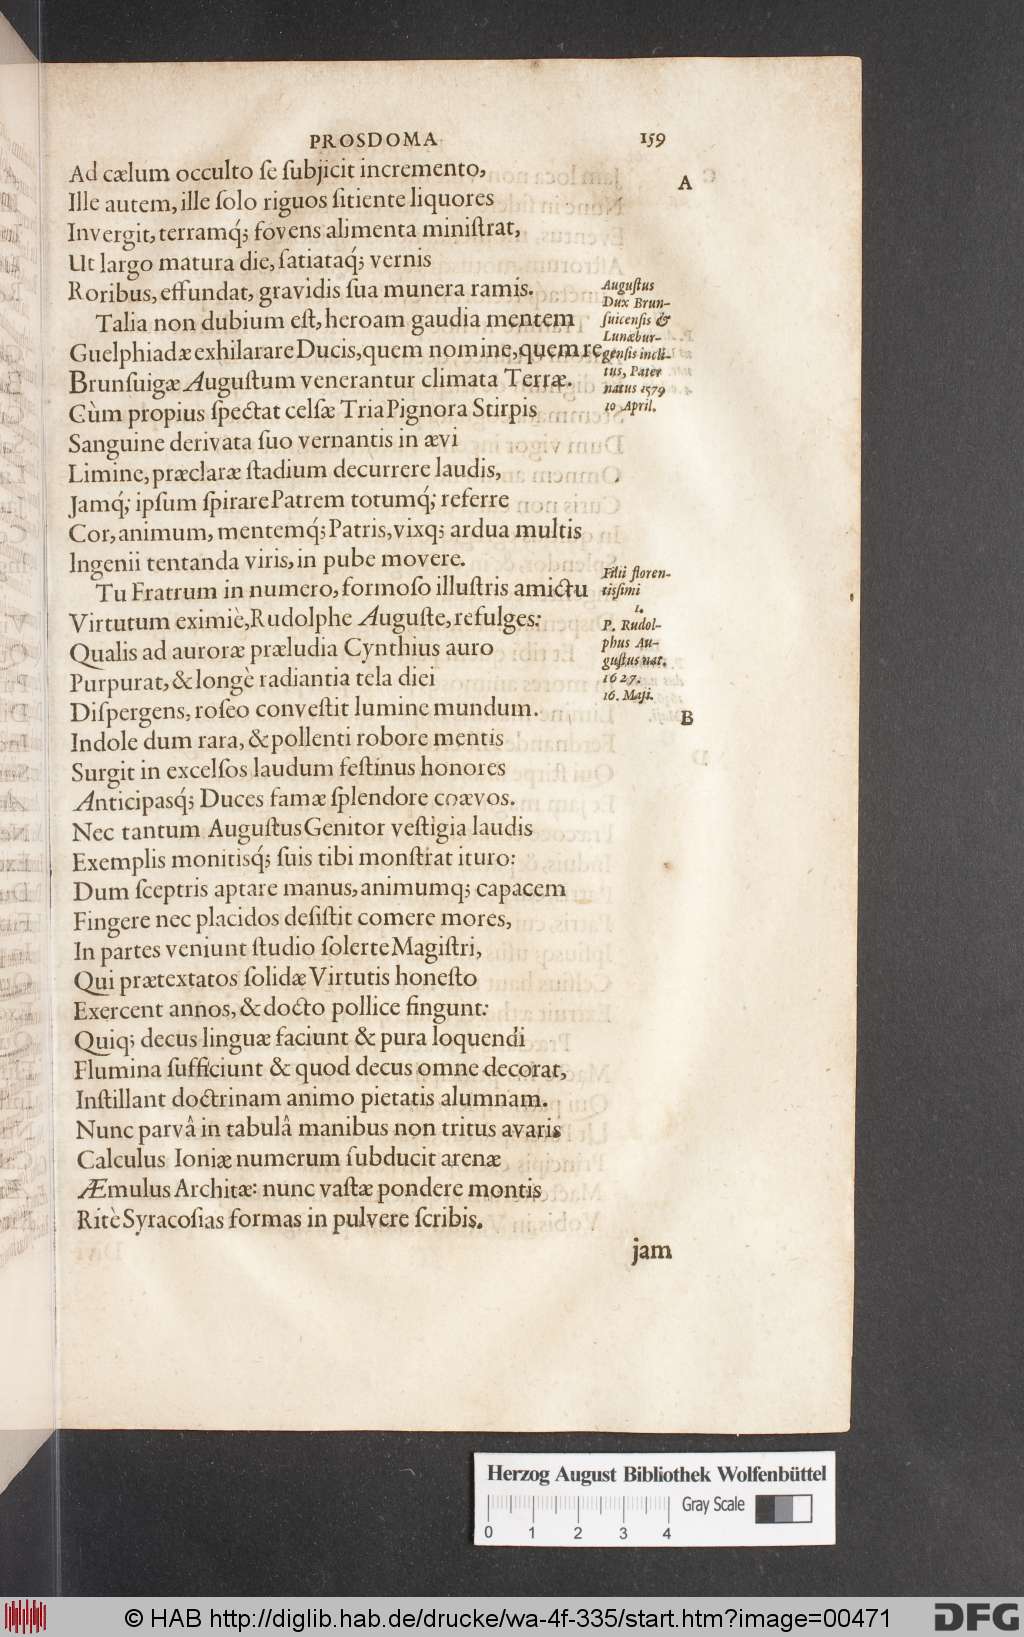 PROSDOMA 159
Ad cælum occulto ſe ſubjicit incremento,
A
Ille autem, ille ſolo riguos ſitiente liquores
Invergit, terramq́; fovens alimenta miniſtrat,
Ut largo matura die, ſatiataq́; vernis
Roribus, effundat, gravidis ſua munera ramis.
Talia non dubium eſt, heroam gaudia mentem
Guelphiadæ exhilarare Ducis, quem nomine, quem re
Brunſuigæ Auguſtum venerantur climata Terræ.
Cùm propius ſpectat celſæ Tria Pignora Stirpis
Sanguine derivata ſuo vernantis in ævi
Limine, præclaræ ſtadium decurrere laudis,
Jamq́; ipſum ſpirare Patrem totumq́; referre
Cor, animum, mentemq́; Patris, vixq; ardua multis
Ingenii tentanda viris, in pube movere.
Tu Fratrum in numero, formoſo illuſtris amictu
Virtutum eximiè, Rudolphe Auguſte, refulges:
Qualis ad auroræ præludia Cynthius auro
Purpurat, & longè radiantia tela diei
Diſpergens, roſeo conveſtit lumine mundum.
Indole dum rara, & pollenti robore mentis
Surgit in excelſos laudum feſtinus honores
Anticipasq́; Duces famæ ſplendore coævos.
Nec tantum Auguſtus Genitor veſtigia laudis
Exemplis monitisq́; ſuis tibi monſtrat ituro:
Dum ſceptris aptare manus, animumq; capacem
Fingere nec placidos deſiſtit comere mores,
In partes veniunt ſtudio ſolerte Magiſtri,
Qui prætextatos ſolidæ Virtutis honeſto
Exercent annos, & docto pollice fingunt:
Quiq; decus linguæ faciunt & pura loquendi
Flumina ſufficiunt & quod decus omne decorat,
Inſtillant doctrinam animo pietatis alumnam.
Nunc parvâ in tabulâ manibus non tritus avaris
Calculus Ioniæ numerum ſubducit arenæ
Æmulus Architæ: nunc vaſtæ pondere montis
Ritè Syracoſias formas in pulvere ſcribis.
jam
Auguſtus
Dux Brun-
ſuicenſis &
Lunæbur-
genſis incli-
tus, Pater
natus 1579
10 April.
Filii floren-
tiſſimi
1.
P. Rudol-
phus Au-
guſtus nat.
1627.
16. Maji.
B
Herzog August Bibliothek Wolfenbüttel
Gray Scale
0 1 2 3 4
© HAB http://diglib.hab.de/drucke/wa-4f-335/start.htm?image=00471
DFG